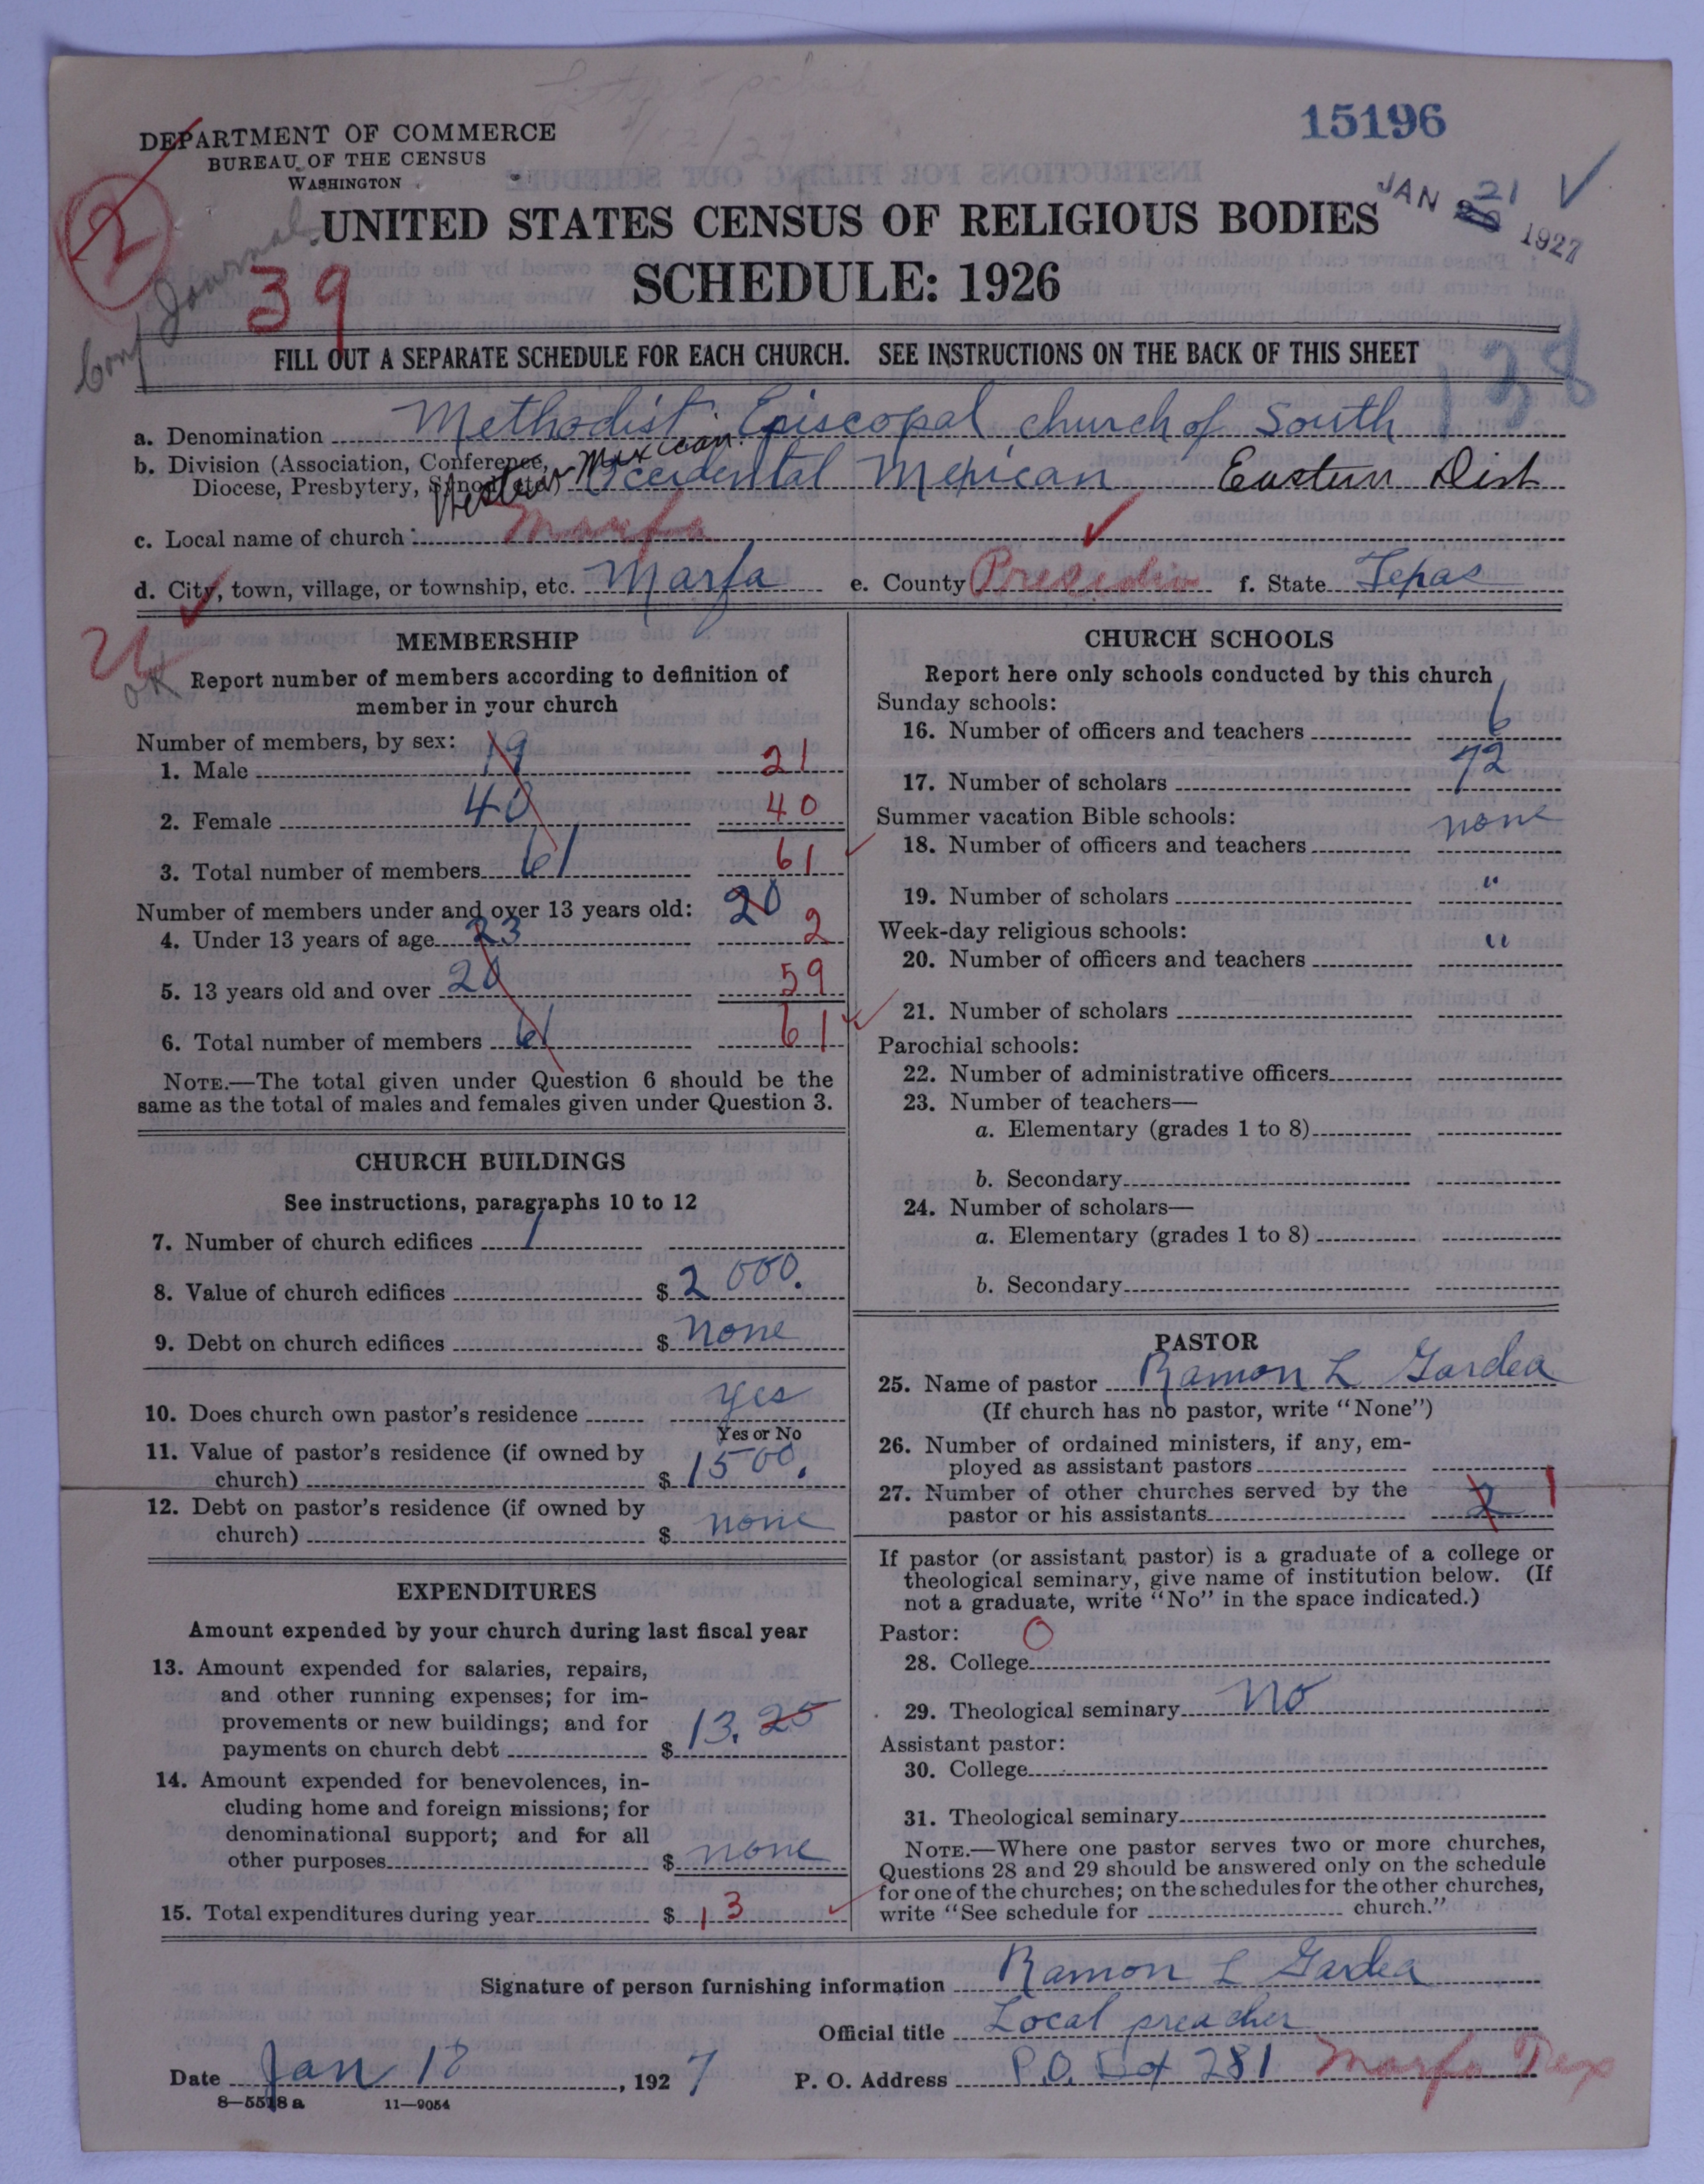 15196
DEPARTMENT OF COMMERCE
BUREAU OF THE CENSUS
WASHINGTON
JAN 21 1927
2
UNITED STATES CENSUS OF RELIGIOUS BODIES
Conf Journal
39
SCHEDULE: 1926
FILL OUT A SEPARATE SCHEDULE FOR EACH CHURCH. SEE INSTRUCTIONS ON THE BACK OF THIS SHEET
138
a. Denomination Methodist Episcopal church of South
b. Division (Association, Conference, Diocese, Presbytery, Synod, etc.) Western Mexican Occidental Mexican Eastern Dist
c. Local name of church Marfa
d. City, town, village, or township, etc. Marfa e. County Presidio f. State Texas
OK
MEMBERSHIP
Report number of members according to definition of
member in your church
Number of members, by sex:
1. Male 19 21
2. Female 40 40
3. Total number of members 61 61
Number of members under and over 13 years old: 20
4. Under 13 years of age 23 2
5. 13 years old and over 20 59
6. Total number of members 61 61
NOTE.—The total given under Question 6 should be the
same as the total of males and females given under Question 3.
CHURCH BUILDINGS
See instructions, paragraphs 10 to 12
7. Number of church edifices 1
8. Value of church edifices $ 2000.
9. Debt on church edifices $ none
10. Does church own pastor's residence yes
Yes or No
11. Value of pastor's residence (if owned by
church) $ 1500.
12. Debt on pastor's residence (if owned by
church) $ none
EXPENDITURES
Amount expended by your church during last fiscal year
13. Amount expended for salaries, repairs,
and other running expenses; for im-
provements or new buildings; and for
payments on church debt $ 13.25
14. Amount expended for benevolences, in-
cluding home and foreign missions; for
denominational support; and for all
other purposes $ none
15. Total expenditures during year $ 13
CHURCH SCHOOLS
Report here only schools conducted by this church
Sunday schools:
16. Number of officers and teachers 6
17. Number of scholars 72
Summer vacation Bible schools:
18. Number of officers and teachers none
19. Number of scholars "
Week-day religious schools:
20. Number of officers and teachers "
21. Number of scholars
Parochial schools:
22. Number of administrative officers
23. Number of teachers—
a. Elementary (grades 1 to 8)
b. Secondary
24. Number of scholars—
a. Elementary (grades 1 to 8)
b. Secondary
PASTOR
25. Name of pastor Ramon L Gardea
(If church has no pastor, write "None")
26. Number of ordained ministers, if any, em-
ployed as assistant pastors
27. Number of other churches served by the
pastor or his assistants 2 1
If pastor (or assistant pastor) is a graduate of a college or
theological seminary, give name of institution below. (If
not a graduate, write "No" in the space indicated.)
Pastor: O
28. College
29. Theological seminary No
Assistant pastor:
30. College
31. Theological seminary
NOTE.—Where one pastor serves two or more churches,
Questions 28 and 29 should be answered only on the schedule
for one of the churches; on the schedules for the other churches,
write "See schedule for church."
Signature of person furnishing information Ramon L Gardea
Official title Local preacher
Date Jan 18, 1927 P. O. Address P.O. Box 281 Marfa Tex
8—5578 a 11—9054